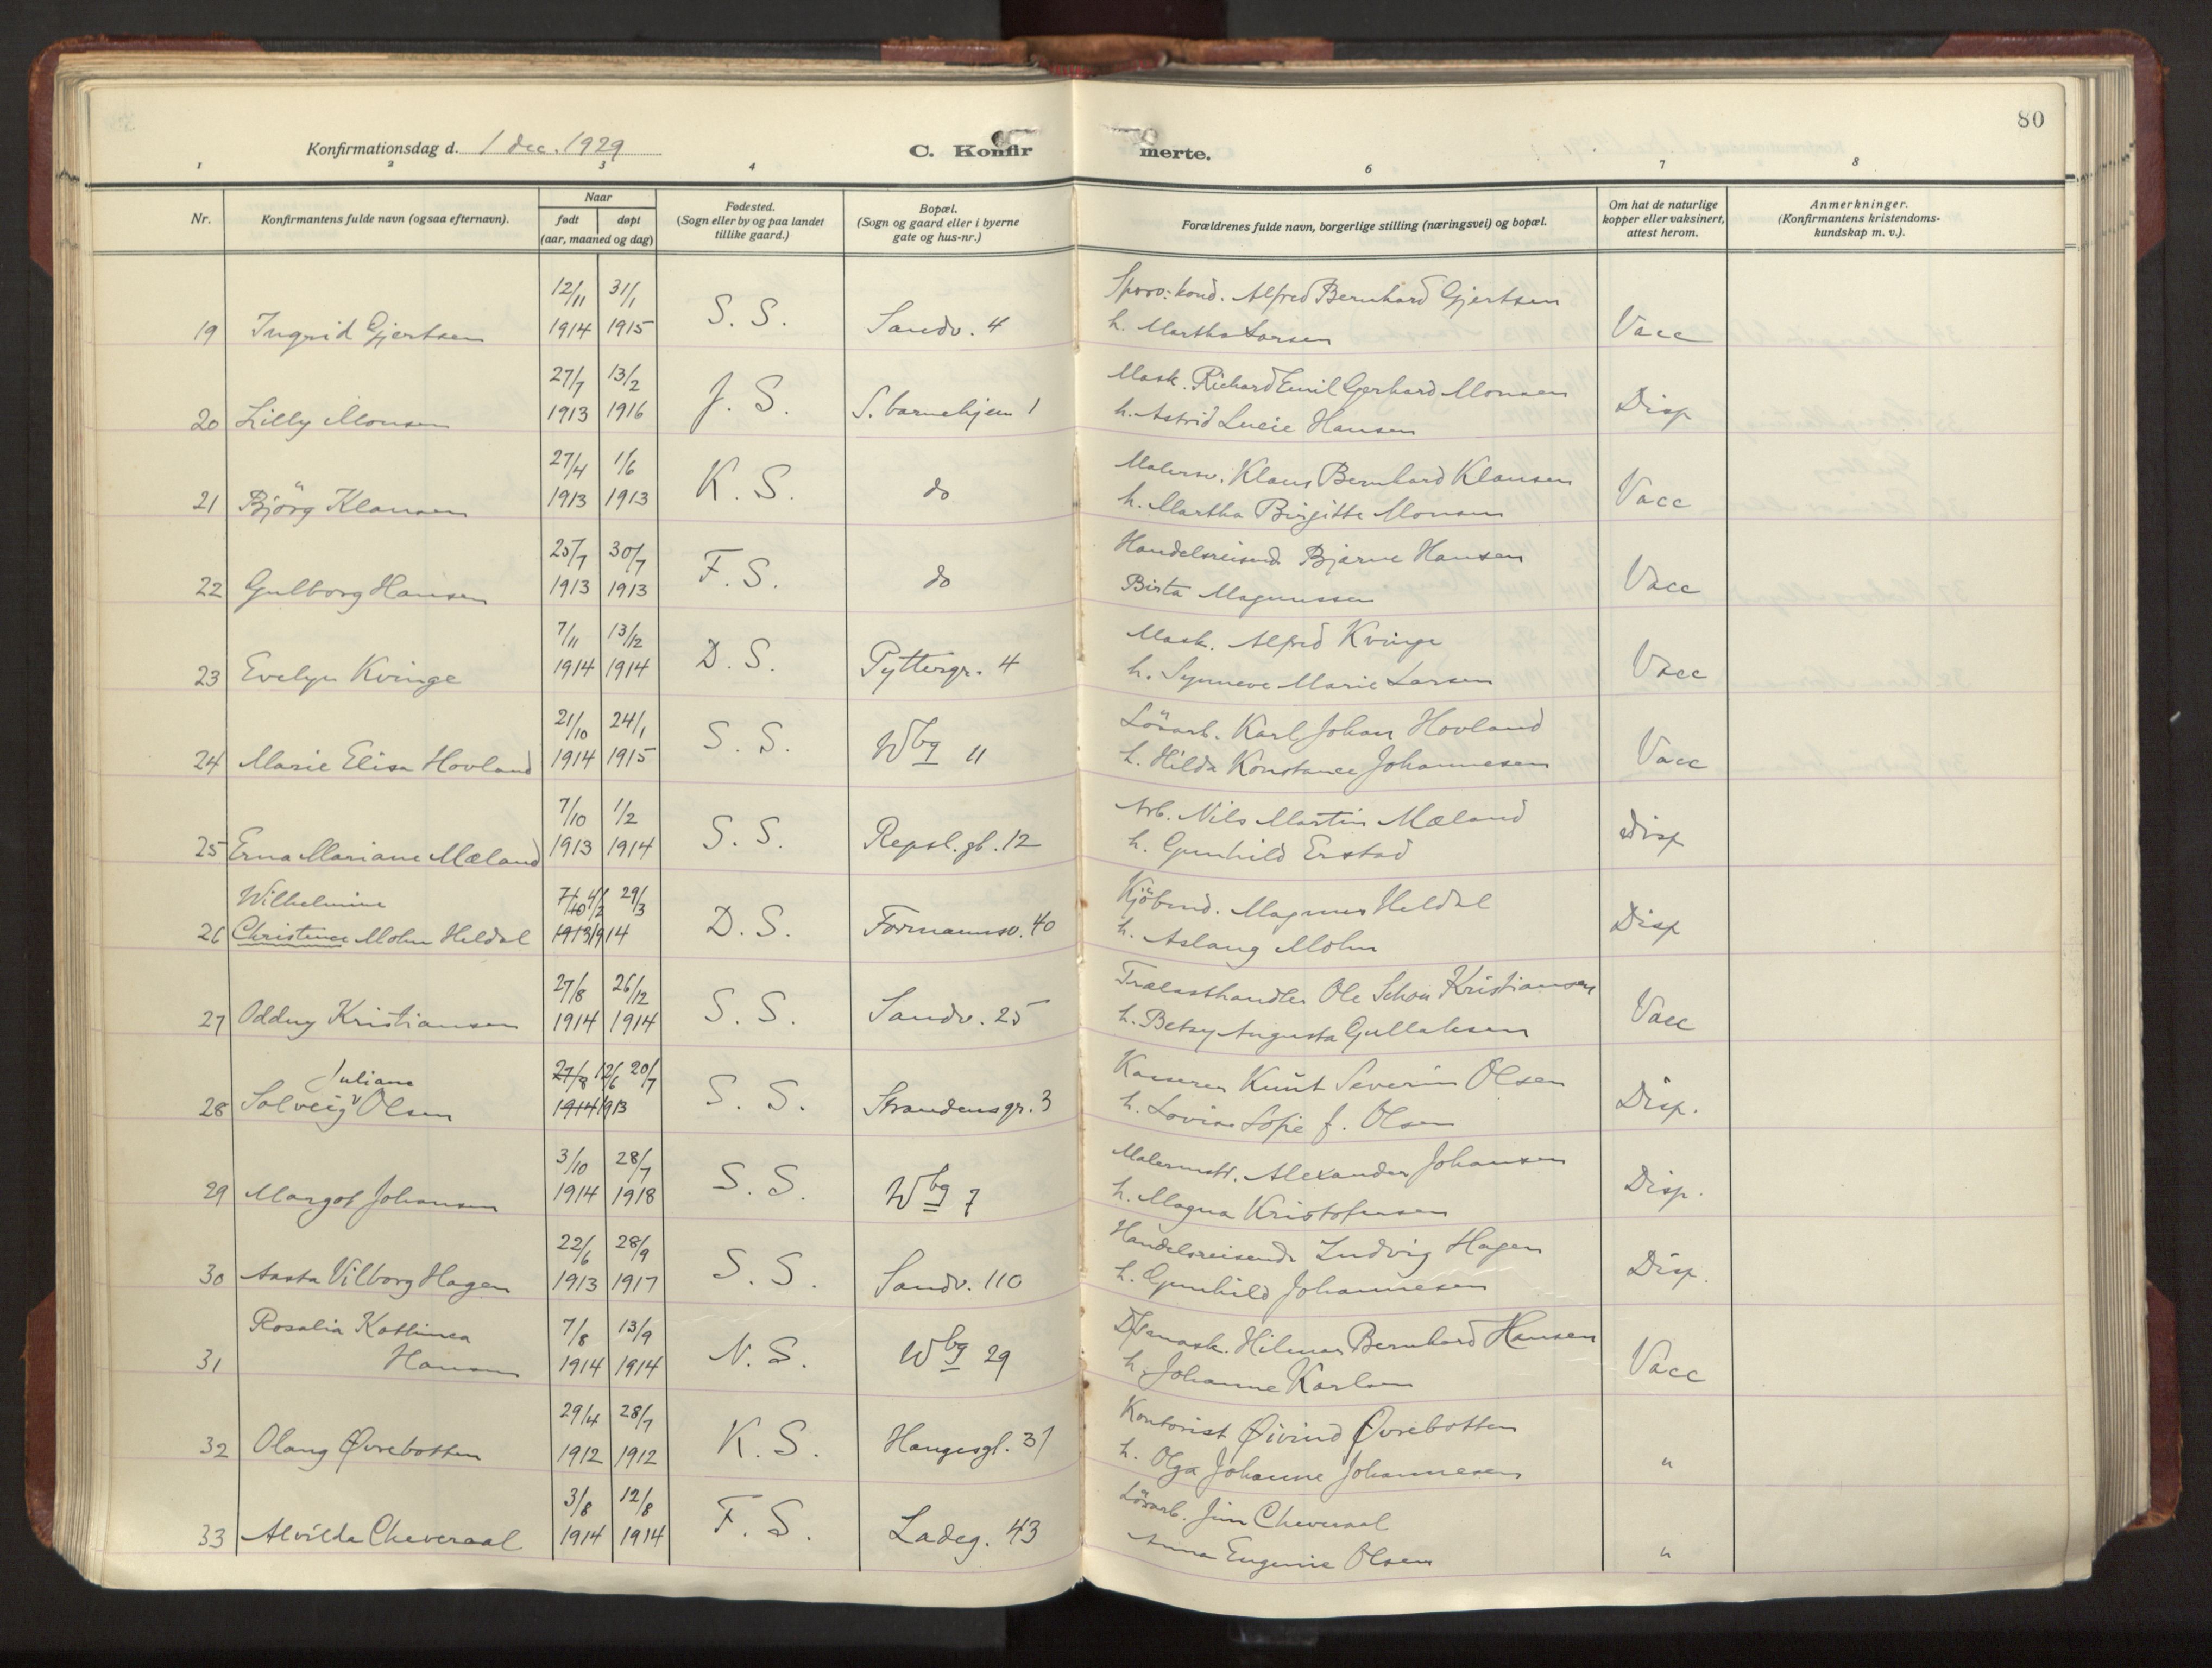 80
Konfirmationsdag d. 1 dec. 1929
C. Konfir merte.
1 2 3 4 6 7 8
Nr.
Konfirmantens fulde navn (ogsaa efternavn).
Naar
født døpt
(aar, maaned og dag)
Fødested.
(Sogn eller by og paa landet
tillike gaard.)
Bopæl.
(Sogn og gaard eller i byerne
gate og hus-nr.)
Forældrenes fulde navn, borgerlige stilling (næringsvei) og bopæl.
Om hat de naturlige
kopper eller vaksinert,
attest herom.
Anmerkninger.
(Konfirmantens kristendoms-
kundskap m. v.).
12/11 31/1 Sporv. kond. Alfred Bernhard Gjertsen
19 Ingrid Gjertsen 1914 1915 S. S. Sandv. 4 h. Martha Larsen Vacc
27/7 13/2 Mask. Richard Emil Gerhard Monsen
20 Lilly Monsen 1913 1916 J. S. S. barnehjem 1 h. Astrid Lucie Hansen Disp
27/4 1/6 Malersv. Klaus Bernhard Klausen
21 Björg Klausen 1913 1913 K. S. do h. Martha Birgitte Monsen Vacc
25/7 30/7 Handelsreisend. Bjarne Hansen
22 Gulborg Hansen 1913 1913 F. S. do Berta Magnussen Vacc
7/11 13/12 Mask. Alfred Kvinge
23 Evelyn Kvinge 1914 1914 D. S. Pyttergr. 4 h. Synneve Marie Larsen Vacc
21/10 24/1 Lösarb. Karl Johan Hovland
24 Marie Elisa Hovland 1914 1915 S. S. Wbg 11 h. Hilda Konstance Johannesen Vacc
7/10 1/2 Arb. Nils Martin Mæland
25 Erna Mariane Mæland 1913 1914 S. S. Repsl. gt. 12 h. Gunhild Erstad Disp
Wilhelmine 7/10 4/2 29/3 Kjöbmd. Magnus Heldal
26 Christence Mohn Heldal 1913 1914 D. S. Formannsv. 40 h. Aslaug Mohn Disp
27/8 26/12 Trælasthandler Ole Schou Kristiansen
27 Oddny Kristiansen 1914 1914 S. S. Sandv. 25 h. Betzy Augusta Gullaksen Vacc
Juliane 27/8 12/6 20/7 Kasserer Knut Severin Olsen
28 Solveig Olsen 1914 1913 S. S. Strandensgr. 3 h. Lovise Sofie f. Olsen Disp.
3/10 28/7 Malermstr. Alexander Johansen
29 Margot Johansen 1914 1918 S. S. Wbg 7 h. Magna Kristofersen Disp.
22/6 28/9 Handelsreisende Ludvig Hagen
30 Aasta Vilborg Hagen 1913 1917 S. S. Sandv. 110 h. Gunhild Johannesen Disp.
Rosalia Kathinca 7/8 13/9 Hilmar Bernhard Hansen
31 Hansen 1914 1914 N. S. Wbg 29 h. Johanne Karlsen Vacc
29/4 28/7 Kontorist Øivind Øvrebotten
32 Olaug Øvrebotten 1912 1912 K. S. Haugesgt. 31 h. Olga Johanne Johannesen "
3/8 12/8 Lösarb. Jim Cheveraal
33 Alvilda Cheveraal 1914 1914 F. S. Ladeg. 43 Anna Eugenie Olsen "